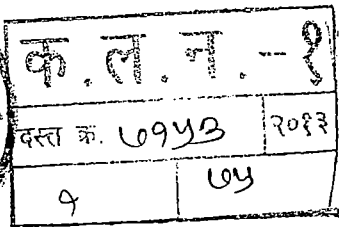 क.ल.न.-१
दस्त क्र. ७१५३ २०१३
१ ७५